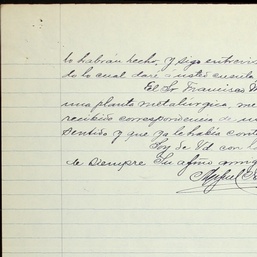 lo habrán hecho, y sigo entrevis
do lo cual daré a usted cuenta
El Sr. Francisco
una planta metalúrgica, me
recibido correspondencia de
sentido y que ya le había cont
Soy de Vd con la
de siempre Su afmo amig
Miguel